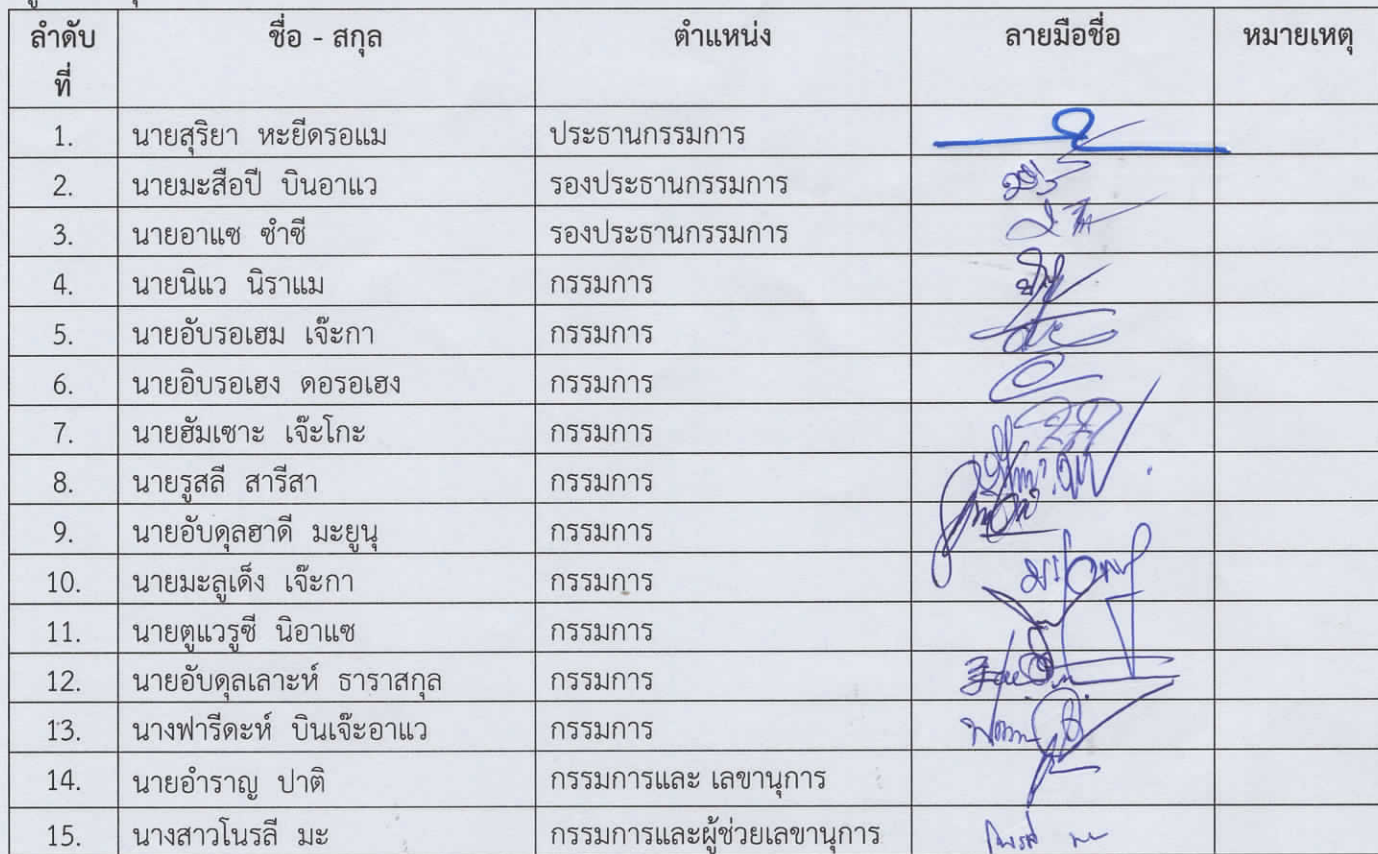 ลำดับ ชื่อ - สกุล ตำแหน่ง ลายมือชื่อ หมายเหตุ
ที่
1. นายสุริยา หะยีดรอแม ประธานกรรมการ
2. นายมะสือปี บินอาแว รองประธานกรรมการ
3. นายอาแซ ซำซี รองประธานกรรมการ
4. นายนิแว นิราแม กรรมการ
5. นายอับรอเฮม เจ๊ะกา กรรมการ
6. นายอิบรอเฮง ดอรอเฮง กรรมการ
7. นายฮัมเซาะ เจ๊ะโกะ กรรมการ
8. นายรูสลี สารีสา กรรมการ
9. นายอับดุลฮาดี มะยูนุ กรรมการ
10. นายมะลูเด็ง เจ๊ะกา กรรมการ
11. นายตูแวรูซี นิอาแซ กรรมการ
12. นายอับดุลเลาะห์ ธาราสกุล กรรมการ
13. นางฟารีดะห์ บินเจ๊ะอาแว กรรมการ
14. นายอำราญ ปาติ กรรมการและ เลขานุการ
15. นางสาวโนรลี มะ กรรมการและผู้ช่วยเลขานุการ